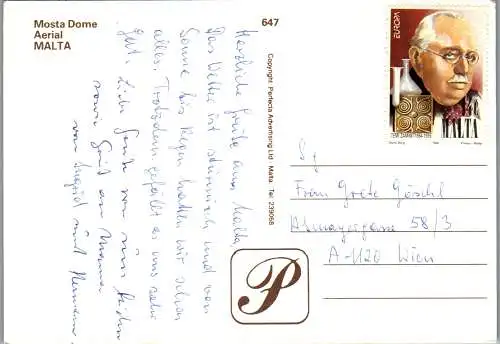 Mosta Dome
Aerial
MALTA
647
Herzliche Grüße aus Malta
Das Wetter ist stürmisch und von
Sonne bis Regen hatten wir schon
alles. Trotzdem gefällt es uns sehr
gut. Liebe Grüße von uns beiden
sowie Gruß an Mama
von Ingrid und
Copyright Perfecta Advertising Ltd - Malta. Tel: 239068
EUROPA
MALTA
Sg
Frau Grete Göschl
58/3
A-1120 Wien
P